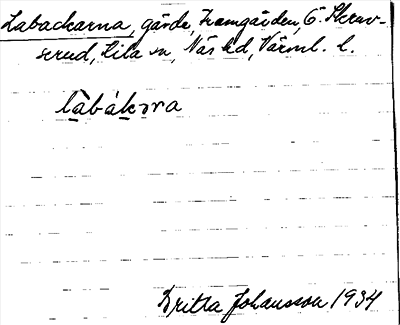 Labackarna, gärde, Framgården, G. Skrav-
serud, Kila sn, Näs hd, Värml. l.
làbákɔra
Britta Johansson 1934